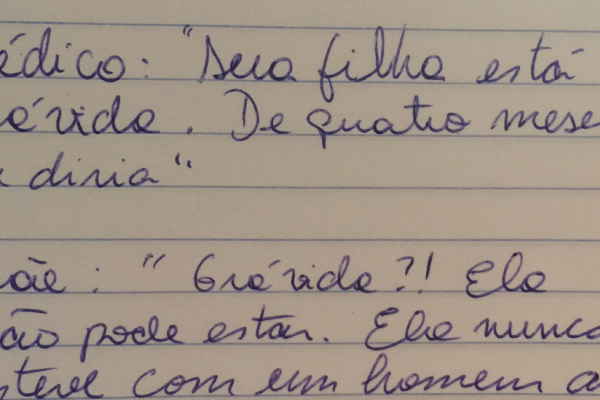 édico: "Sua filha está
rávida. De quatro mese
diria"
ãe: "Grávida?! Ela
ão pode estar. Ela nunca
steve com um homem a